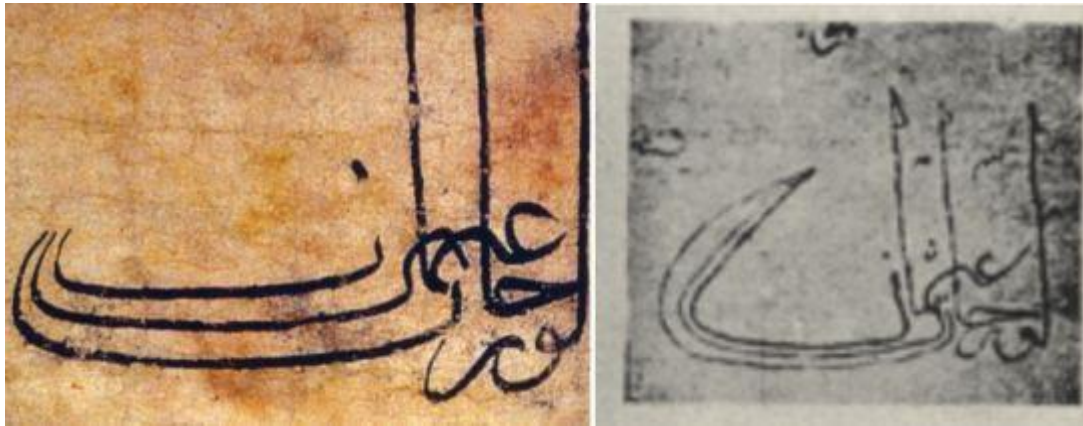 اورخان بن عثمان
اورخان بن عثمان